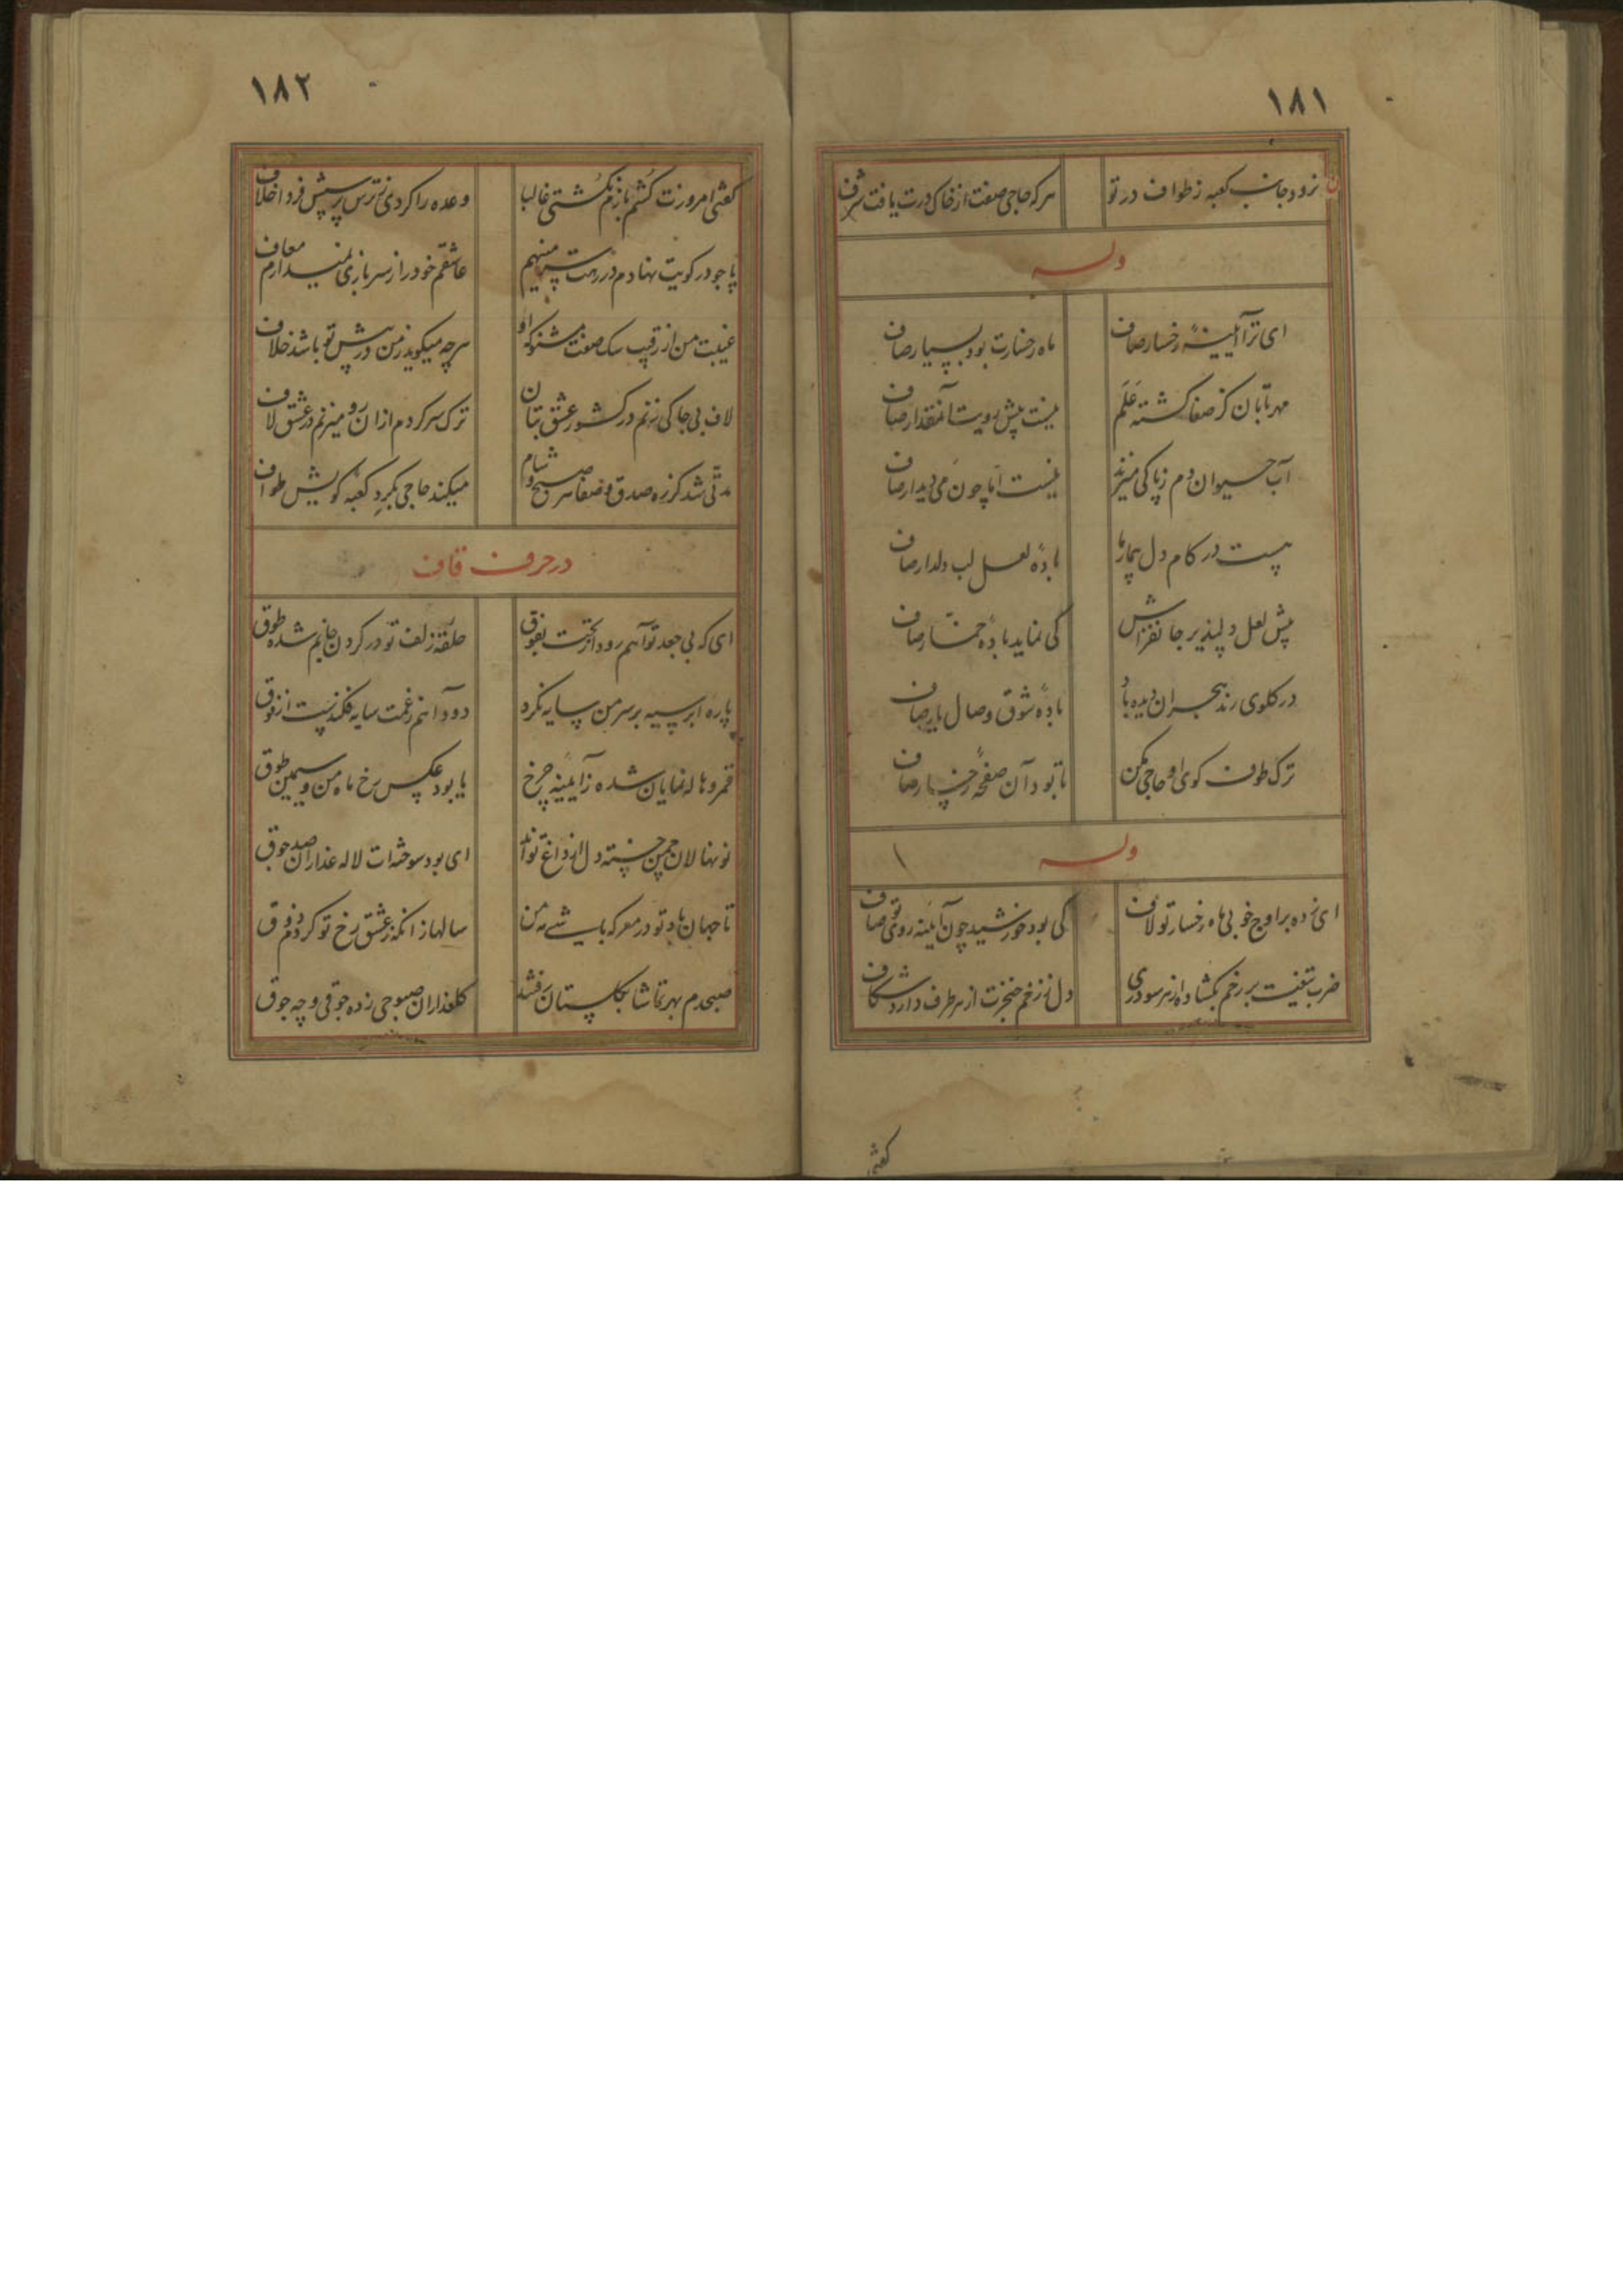 ۱۸۱
نرود جانب کعبه ز طواف در تو
هرکه حاجی صفت از خاک درت یافت شرف
وله
ای ترا آیینهٔ رخسار صاف
ماه رخسارت بود بسیار صاف
مهر تابان کز صفا گشته عَلَم
نیست پیش رویت آنمقدار صاف
آب حیوان دم ز پاکی میزند
نیست اما چون می دیدار صاف
هست در کام دل بیمار ما
بادهٔ لعل لب دلدار صاف
پیش لعل دلپذیر جانفزاش
کی نماید بادهٔ خمّار صاف
در گلوی رند هجران دیده باد
بادهٔ شوق وصال یار صاف
ترک طوف کوی او حاجی مکن
تا بود آن صفحهٔ رخسار صاف
وله
ای زده بر اوج خوبی ماه رخسار تو لاف
کی بود خورشید چون آیینه روی تو صاف
ضرب تیغت بر رخم بگشاده از هر سو دری
دل ز زخم خنجرت از هر طرف دارد شکاف
گفتی
۱۸۲
گفتی امروزت کُشم بازم نکُشتی غالبا
وعده را کردی ز ترس پرسش فردا خلاف
پا چو در کویت نهادم در رهت سر مینهم
عاشقم خود را ز سربازی نمیدارم معاف
غیبت من از رقیب سک صفت مشنو که او
هرچه میکوید ز من در پیش تو باشد خلاف
لاف بی جا کی زنم در کشور عشق بتان
ترک سر کردم از ان رو میزنم در عشق لاف
مدتی شد کز ره صدق و صفا هر صبح و شام
میکند حاجی بکرد کعبه کویش طواف
در حرف قاف
ای که بی جعد تو آهم رود از تحت بفوق
حلقه زلف تو در کردن جانم شده طوق
پارهٔ ابر سیه بر سر من سایه نکرد
دود آهم ز غمت سایه فکندست از فوق
قمر و هاله نمایان شده ز آیینه چرخ
یا بود عکس رخ ماه من و سیمین طوق
نونهالان چمن خسته دل از داغ تو اند
ای بود سوخته ات لاله عذاران صد جوق
تا جهان باد تو در معرکه باشی مه من
سالها ز انکه ز عشق رخ تو کردم ذوق
صبحدم بهر تماشا بکلستان رفتند
کلعذاران صبوحی زده جوقی و چه جوق